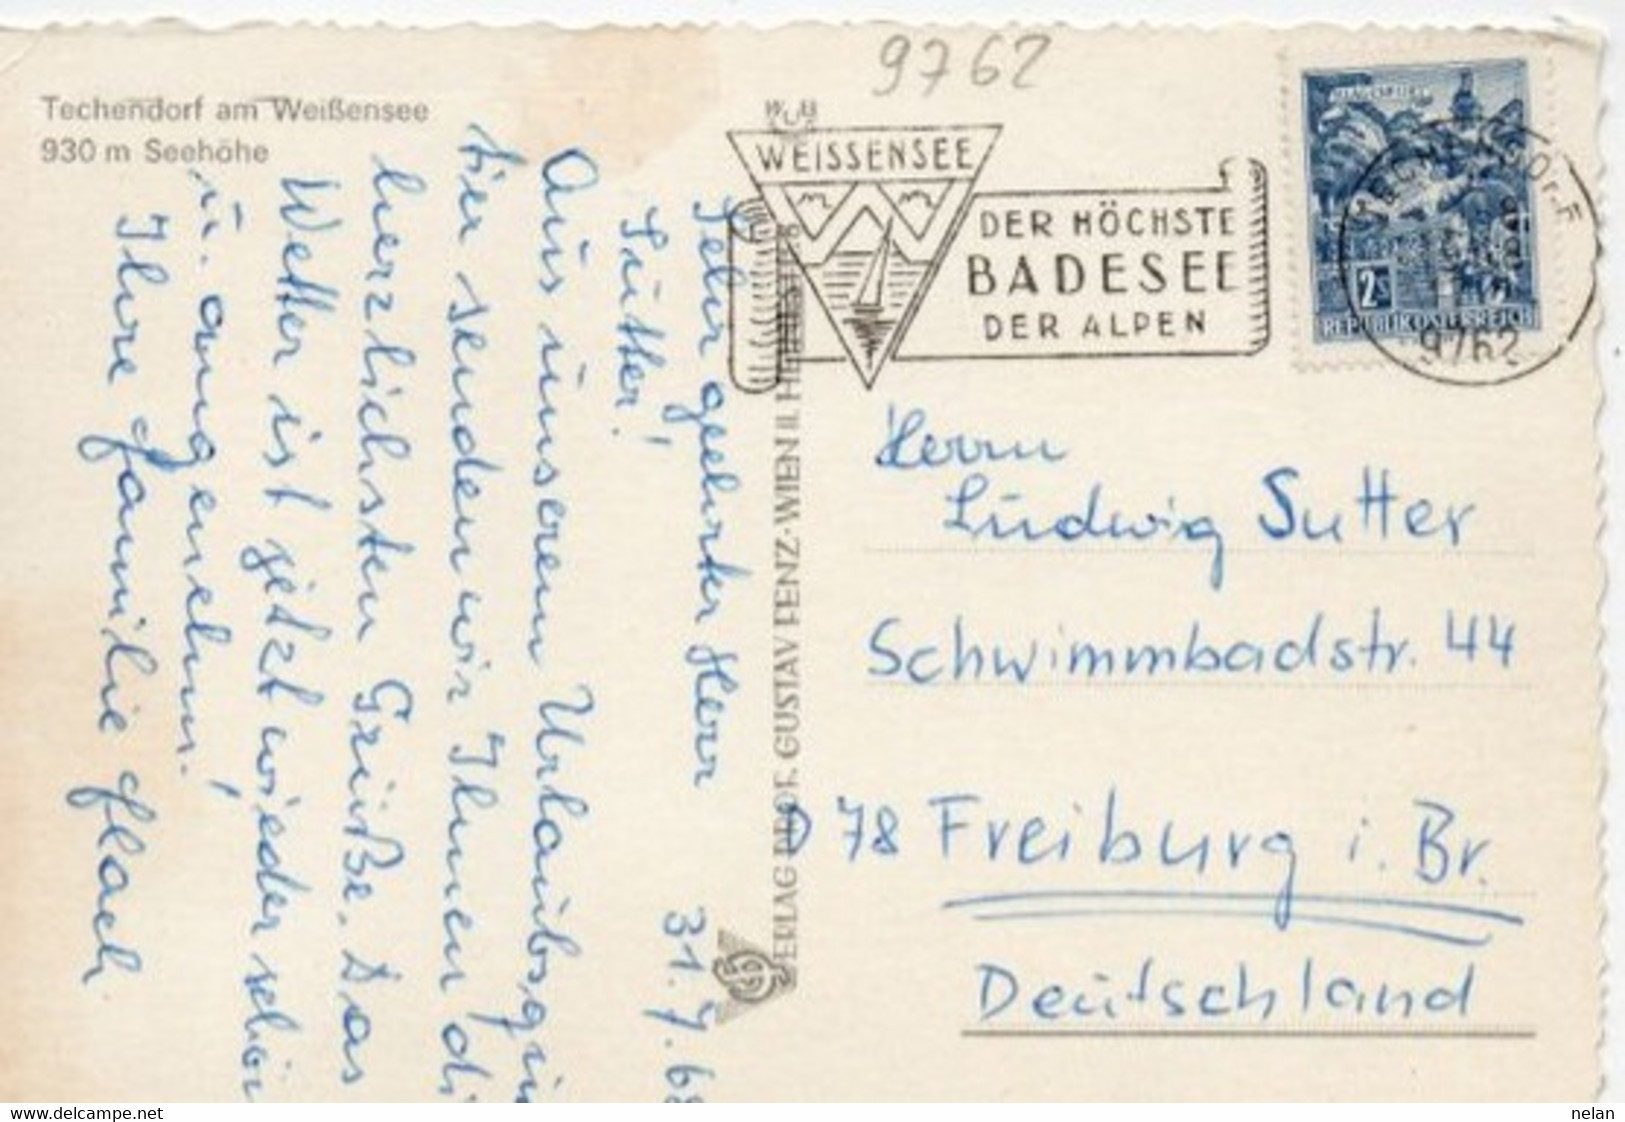 Techendorf am Weißensee
930 m Seehöhe
9762
WEISSENSEE
DER HÖCHSTE
BADESEE
DER ALPEN
KLAGENFURT
2S
REPUBLIK ÖSTERREICH
TECHENDORF
9762
31.7.68
Sehr geehrter Herr
Sutter!
Aus unserem Urlaubsqu
tier senden wir Ihnen di
herzlichsten Grüße. Das
Wetter ist jetzt wieder schön
u. angenehm!
Ihre Familie Flach
VERLAG GUSTAV WIEN II.
Herrn
Ludwig Sutter
Schwimmbadstr. 44
D 78 Freiburg i. Br.
Deutschland
www.delcampe.net
nelan